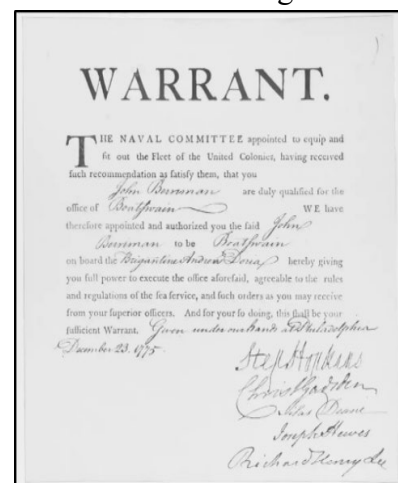 WARRANT.
THE NAVAL COMMITTEE appointed to equip and
fit out the Fleet of the United Colonies, having received
such recommendation as satisfy them, that you
John Berriman are duly qualified for the
office of Boatswain WE have
therefore appointed and authorized you the said John
Berriman to be Boatswain
on board the Brigantine Andrew Doria hereby giving
you full power to execute the office aforesaid, agreeable to the rules
and regulations of the sea service, and such orders as you may receive
from your superior officers. And for so doing, this shall be your
sufficient Warrant. Given under our hands at Philadelphia
December 23. 1775.
Step Hopkins
Christ Gadsden
Silas Deane
Joseph Hewes
Richard Henry Lee